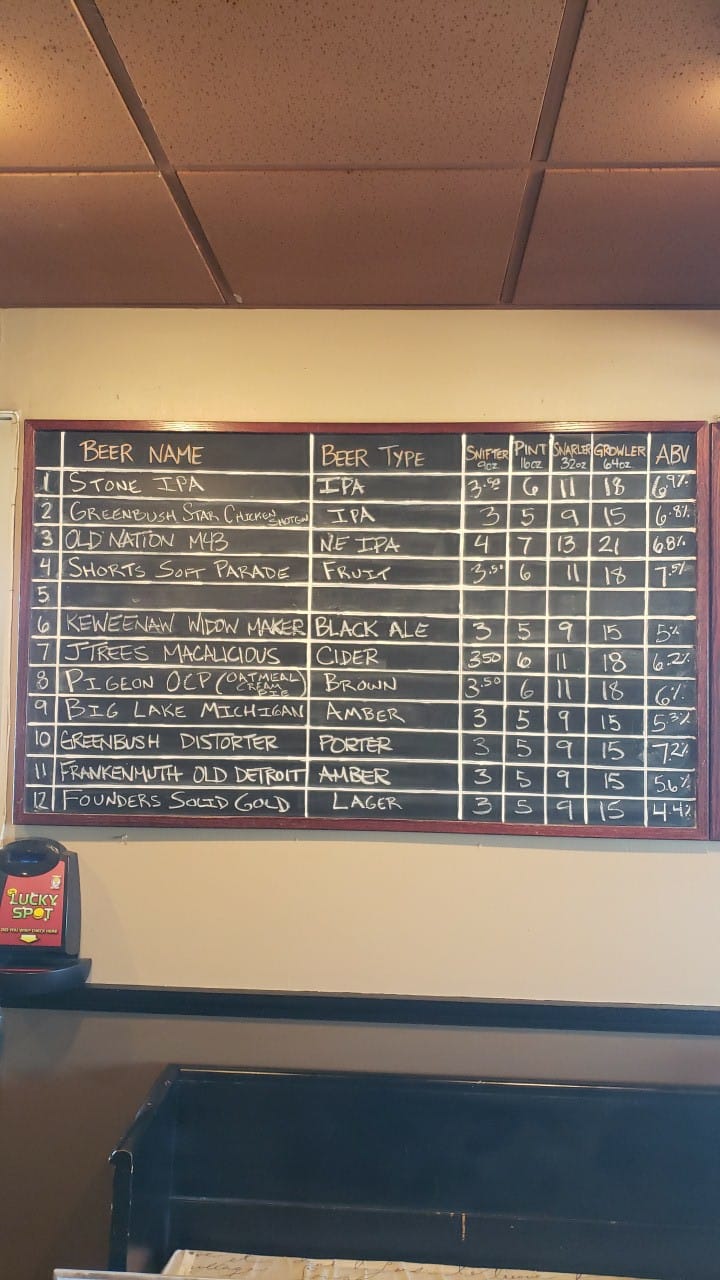 BEER NAME BEER TYPE SNIFTER 9oz PINT 16oz SNARLER 32oz GROWLER 64oz ABV
1 STONE IPA IPA 3.50 6 11 18 6.9%
2 GREENBUSH STAR CHICKEN SHOTGUN IPA 3 5 9 15 6.8%
3 OLD NATION M43 NE IPA 4 7 13 21 6.8%
4 SHORTS SOFT PARADE FRUIT 3.50 6 11 18 7.5%
5
6 KEWEENAW WIDOW MAKER BLACK ALE 3 5 9 15 5%
7 JTREES MACALICIOUS CIDER 3.50 6 11 18 6.2%
8 PIGEON OCP (OATMEAL CREAM PIE) BROWN 3.50 6 11 18 6%
9 BIG LAKE MICHIGAN AMBER 3 5 9 15 5.3%
10 GREENBUSH DISTORTER PORTER 3 5 9 15 7.2%
11 FRANKENMUTH OLD DETROIT AMBER 3 5 9 15 5.6%
12 FOUNDERS SOLID GOLD LAGER 3 5 9 15 4.4%
LUCKY
SPOT
DID YOU WIN? CHECK HERE